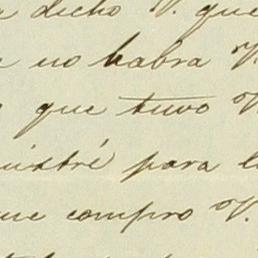 a dicho V. que
no habra V.
que tuvo V.
para
que compro V.